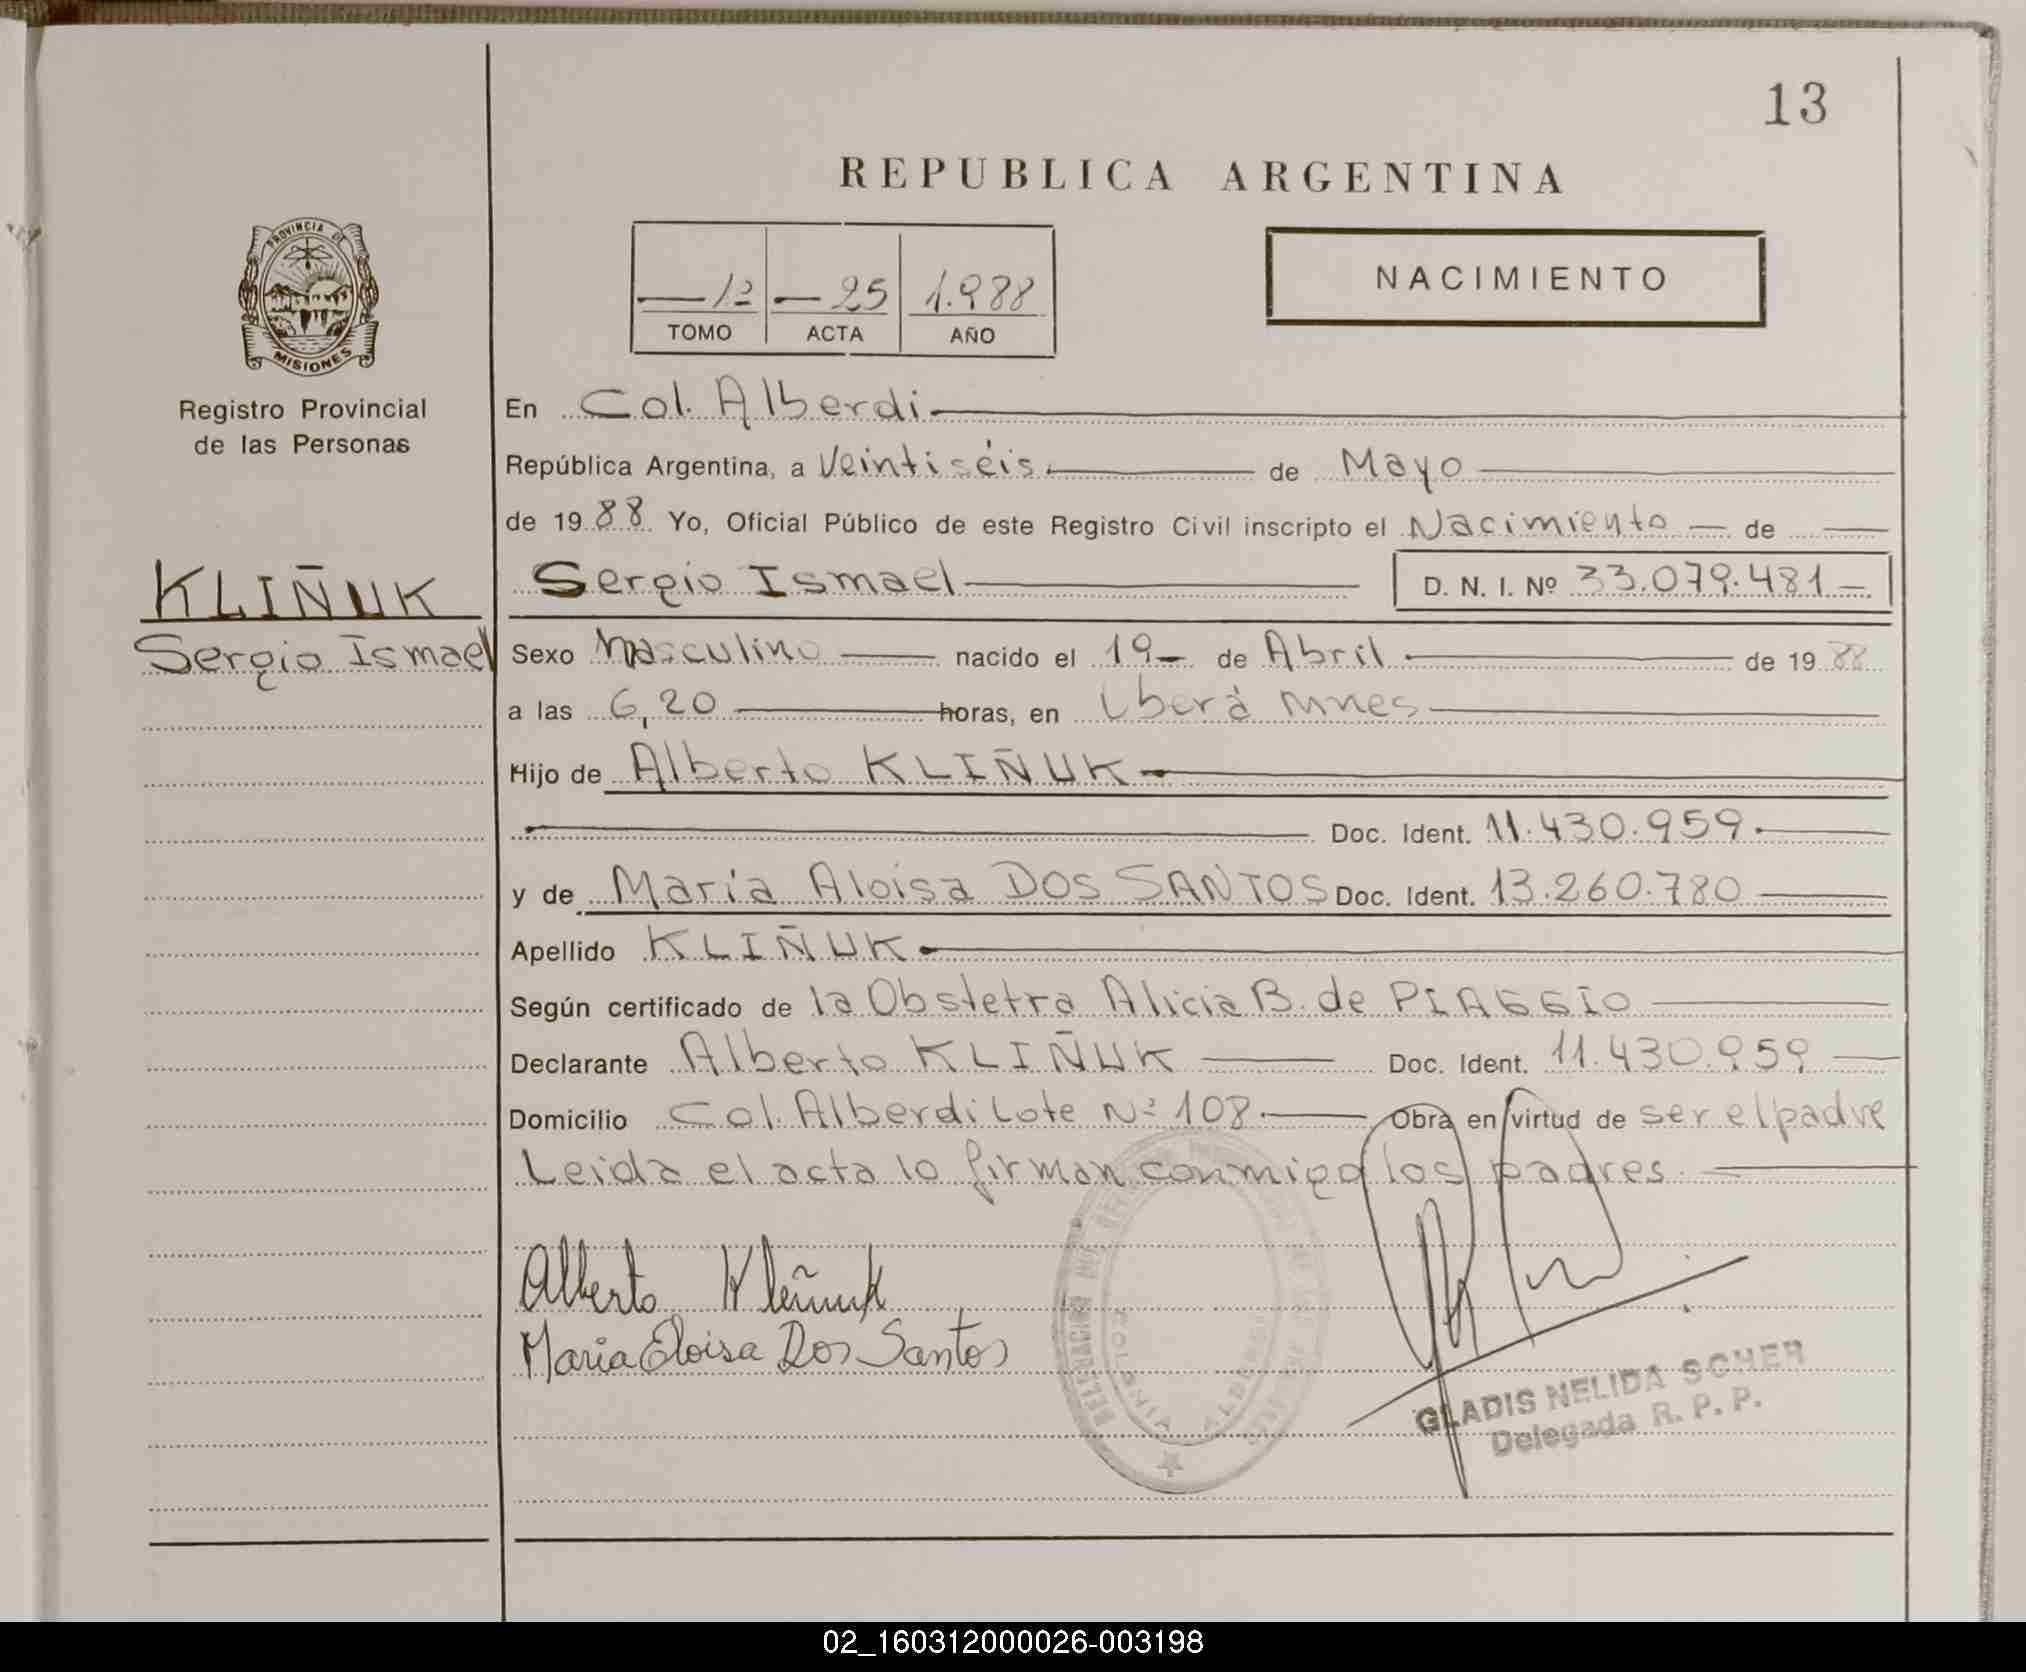 13
REPUBLICA ARGENTINA
PROVINCIA DE
MISIONES
Registro Provincial
de las Personas
1º 25 1.988
TOMO ACTA AÑO
NACIMIENTO
En Col. Alberdi
República Argentina, a Veintiséis de Mayo
de 1988 Yo, Oficial Público de este Registro Civil inscripto el Nacimiento de
KLIÑUK
Sergio Ismael
Sergio Ismael D. N. I. Nº 33.079.481
Sexo Masculino nacido el 19 de Abril de 1988
a las 6,20 horas, en Uberá Mnes
Hijo de Alberto KLIÑUK
Doc. Ident. 11.430.959
y de María Aloisa DOS SANTOS Doc. Ident. 13.260.780
Apellido KLIÑUK
Según certificado de la Obstetra Alicia B. de PIAGGIO
Declarante Alberto KLIÑUK Doc. Ident. 11.430.959
Domicilio Col. Alberdi Lote Nº 108 Obra en virtud de ser el padre
Leida el acta lo firman conmigo los padres
Alberto Kliñuk
Maria Eloisa Dos Santos
COLONIA ALBERDI
GLADIS NELIDA SCHER
Delegada R. P. P.
02_160312000026-003198